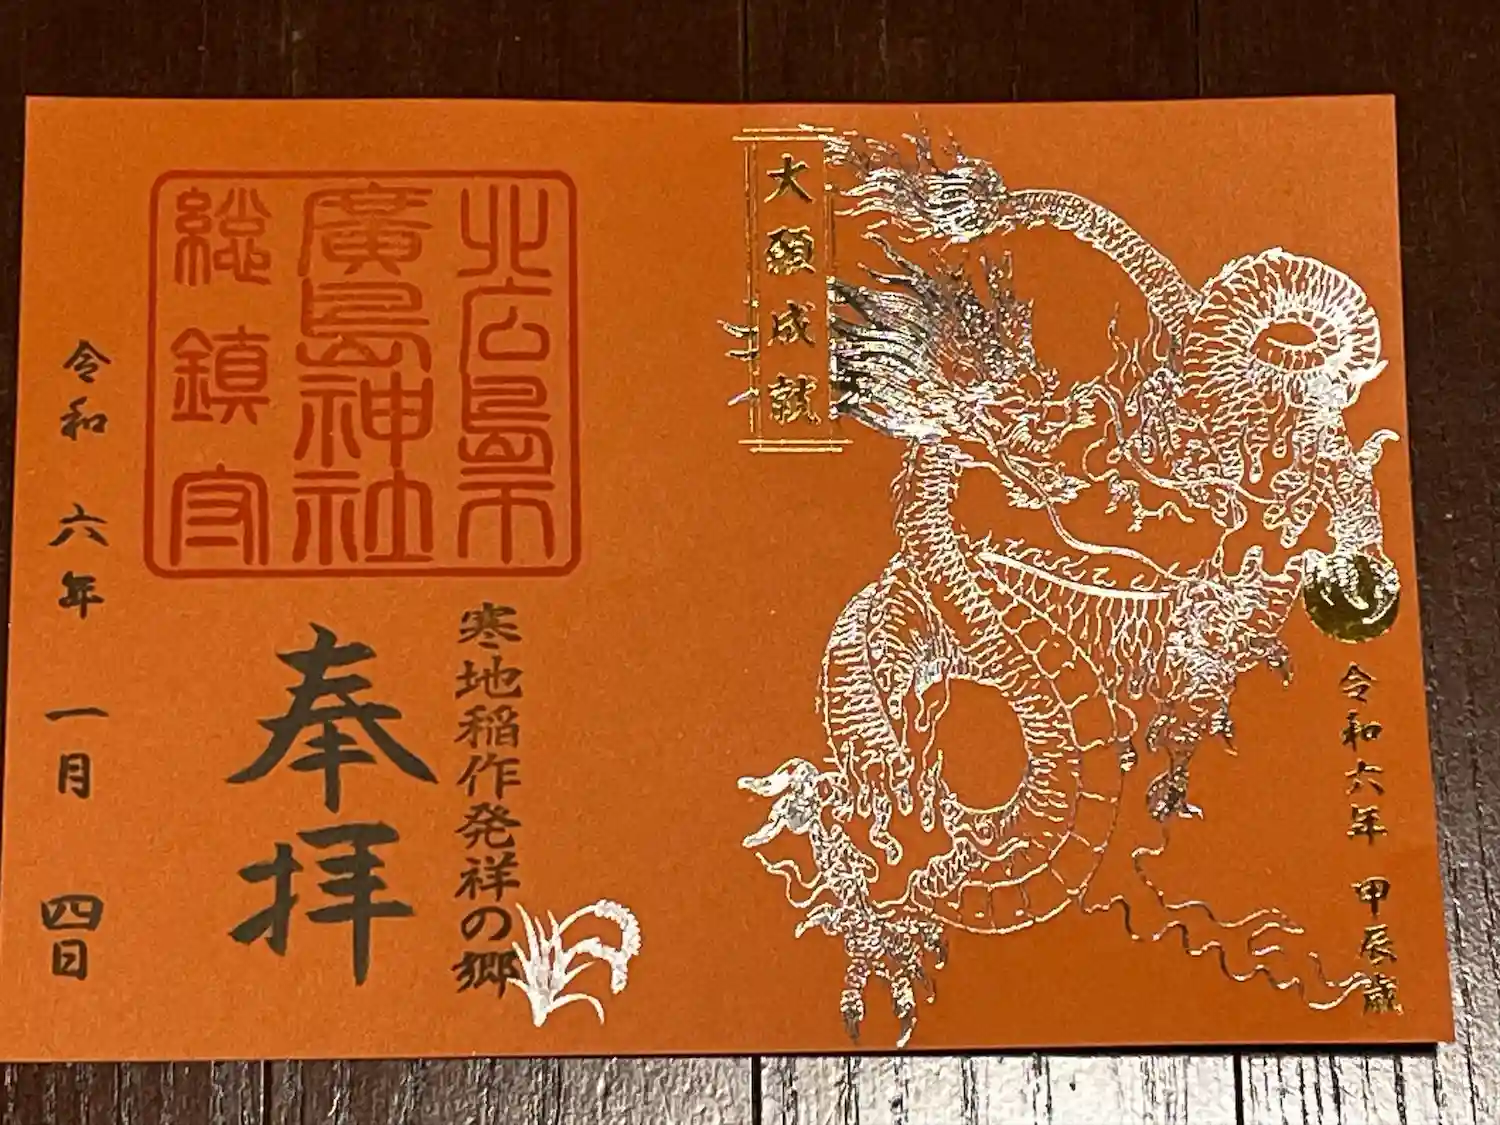 大願成就
令和六年 甲辰歳
北広島市
廣島神社
総鎮守
寒地稲作発祥の郷
奉拝
令和 六年 一月 四日